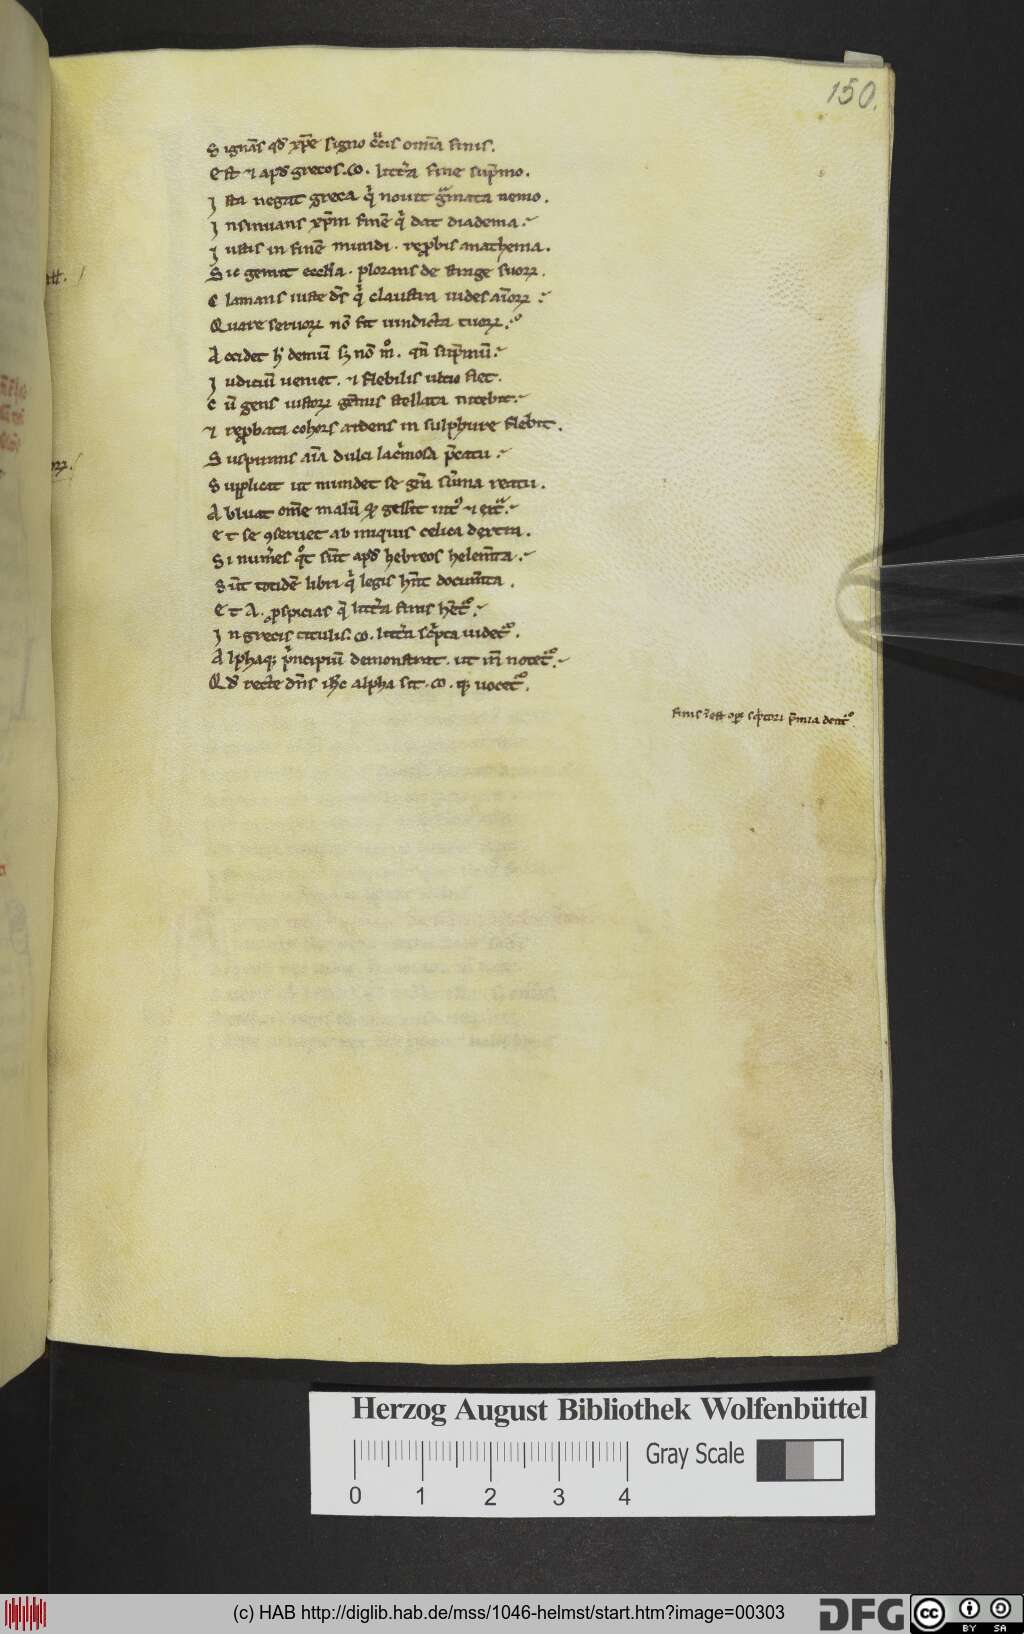 150.
Signãs qđ xp̄e signo cͣcis om̄ia finis.
Est ⁊ apđ grecos .ω. litt̾a fine sup̄mo.
Ista negat greca qͥ nouit gͣmata nemo.
Insinuans xp̄m finē qͥ dat diadema.
Iustis in finē mundi . reꝓbis anathema.
Sic gemit eccl̄ia . plorans de suoꝝ.
Clamans iuste ds̄ qͥ claustra uides aīoꝝ
Quare seruoꝝ nō fit uindicta tuoꝝ.
Accidet h̾ demū nō mͦ. sup̄mū.
Iudiciū ueniet . ⁊ flebilis ultio fiet.
Cū gens iustoꝝ gēmis stellata nitebit.
⁊ reꝓbata cohors ardens in sulphure flebit.
Suspirans aīa dulci lacͥmosa p̄catu
Supplicat ut mundet se sūma reatu.
Abluat om̄e malū gessit intꝰ ⁊ eͣ.
Et se ꝯseruet ab iniquis celica dextra.
Si num̄es qͦt sūt apđ hebreos helem̄ta
Sūt totidē libri qͥ legis hn̄t docum̄ta.
Et A. ꝓspicias qͣ litt̾a finis hētͦ.
In grecis titulis .ω. litt̾a scͥpta uidetͦ.
Alphaqꝫ pͥncipiū demonstrat . ut m̄ notetͦ.
Qđ recte dn̄s ihc̄ alpha sit .ω. qꝫ uocetͦ.
finis est scͥptori p̄mia dentͦ.
Herzog August Bibliothek Wolfenbüttel
Gray Scale
0 1 2 3 4
(c) HAB http://diglib.hab.de/mss/1046-helmst/start.htm?image=00303
DFG
cc BY SA